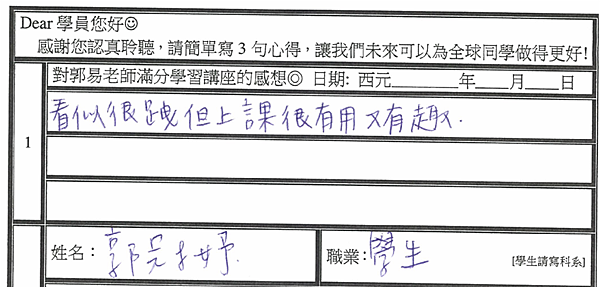 Dear 學員您好☺
感謝您認真聆聽，請簡單寫 3 句心得，讓我們未來可以為全球同學做得更好!
對郭易老師滿分學習講座的感想◎ 日期: 西元________年____月____日
1
看似很跩但上課很有用又有趣.
姓名：郭
職業：學生 [學生請寫科系]